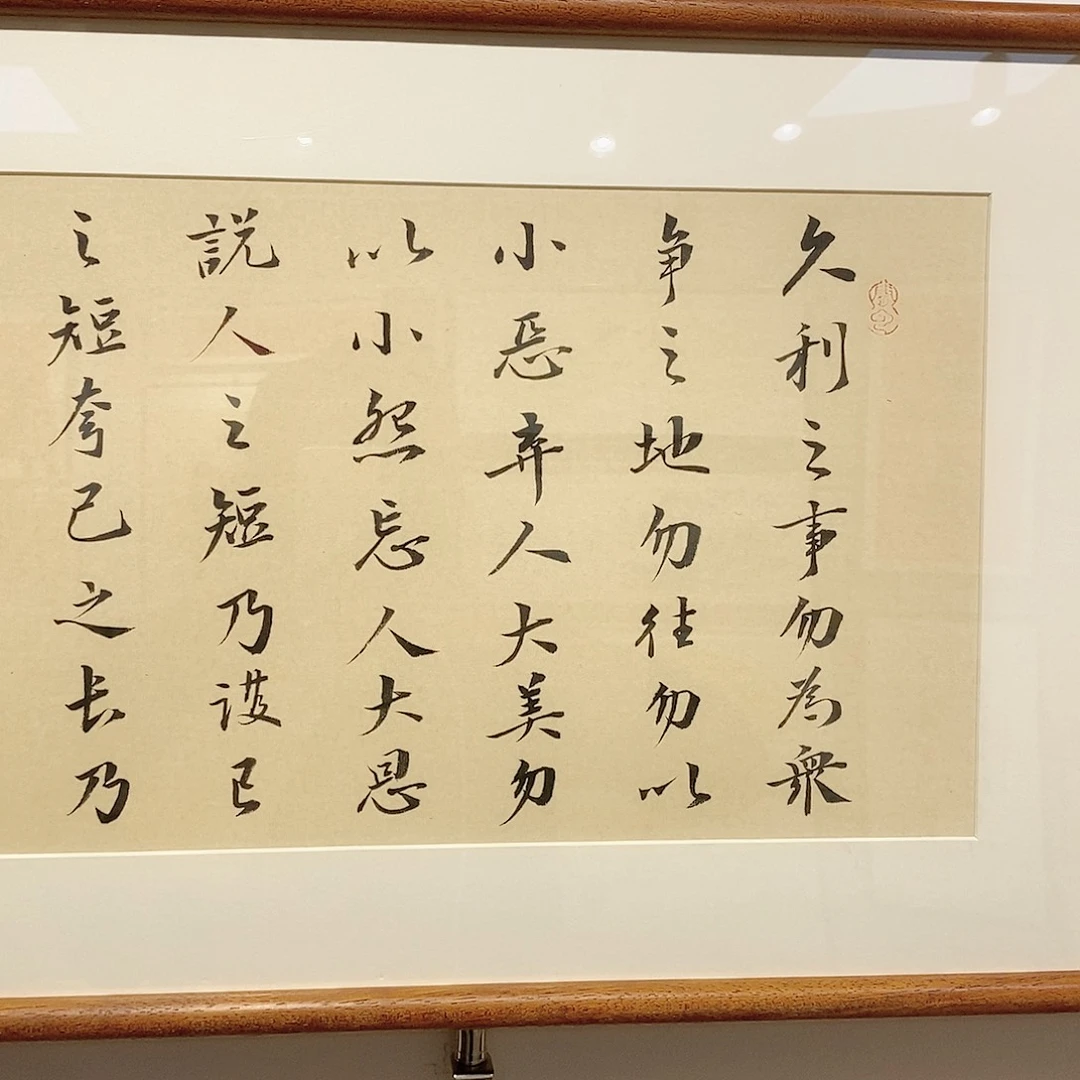 久利之事勿為衆
争之地勿往勿以
小惡棄人大美勿
以小怨忘人大恩
説人之短乃護己
之短夸己之长乃